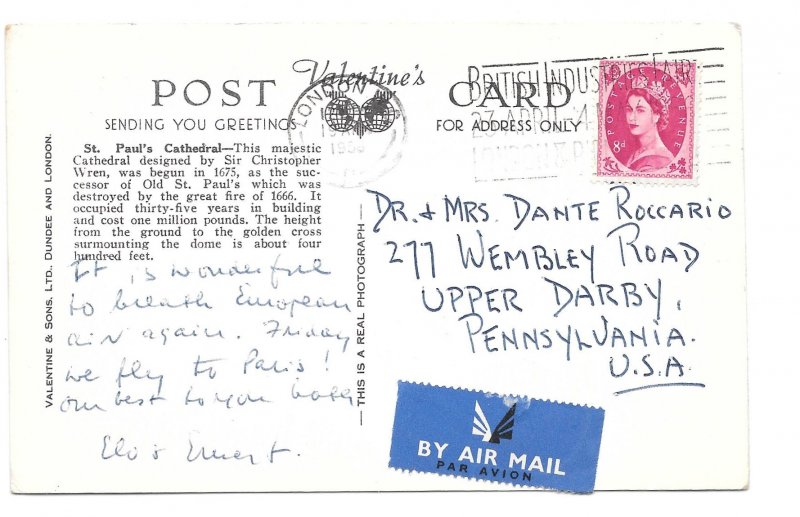 Valentine's
POST CARD
SENDING YOU GREETINGS
FOR ADDRESS ONLY
St. Paul's Cathedral—This majestic
Cathedral designed by Sir Christopher
Wren, was begun in 1675, as the suc-
cessor of Old St. Paul's which was
destroyed by the great fire of 1666. It
occupied thirty-five years in building
and cost one million pounds. The height
from the ground to the golden cross
surmounting the dome is about four
hundred feet.
It is wonderful
to breath European
air again. Friday
we fly to Paris!
our best to you both
Ernest.
VALENTINE & SONS, LTD., DUNDEE AND LONDON.
— THIS IS A REAL PHOTOGRAPH —
LONDON
BRITISH INDUSTRIES FAIR
POSTAGE REVENUE
8d
DR. & MRS. DANTE ROCCARIO
277 WEMBLEY ROAD
UPPER DARBY,
PENNSYLVANIA.
U.S.A.
BY AIR MAIL
PAR AVION